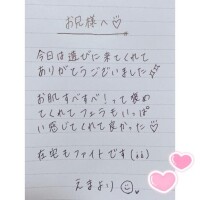 お兄様へ♡
今日は遊びに来てくれて
ありがとうございました
お肌すべすべ！って褒め
てくれてフェラもいっぱ
い感じてくれて良かった♡
在宅もファイトです(ii)
えまより